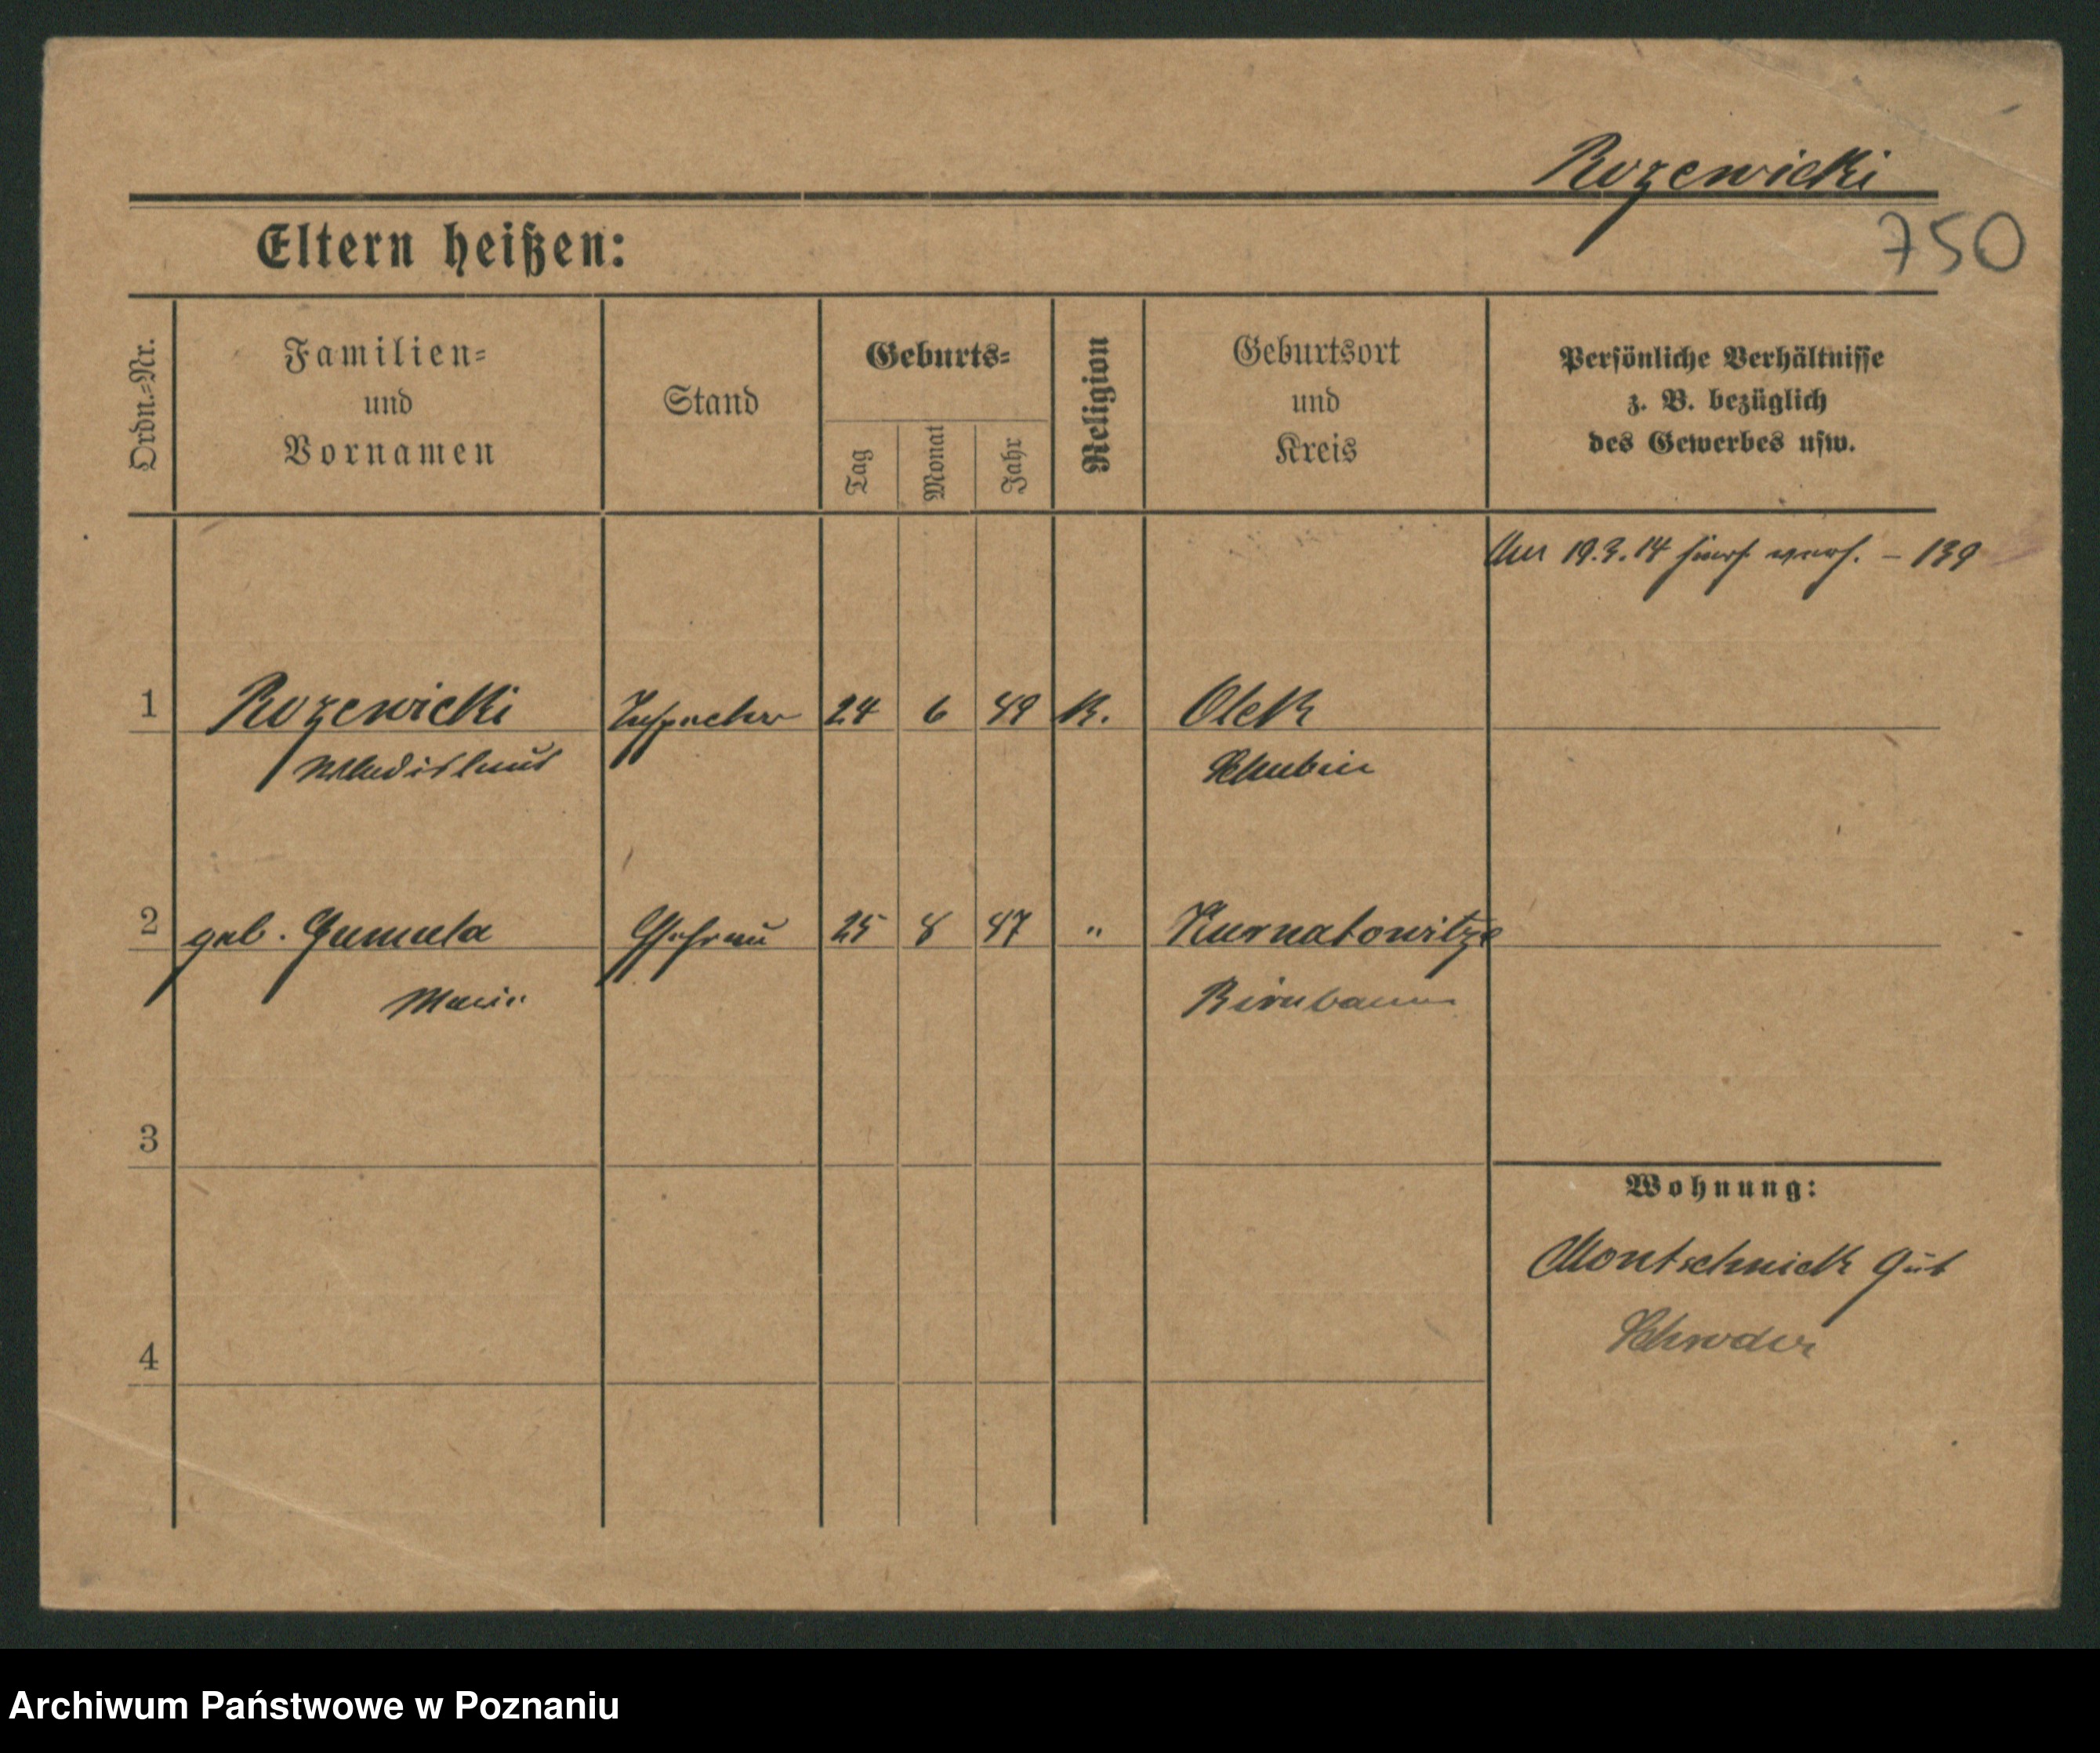 Rozewicki
750
Eltern heißen:
Ordn.=Nr.
Familien=
und
Vornamen
Stand
Geburts=
Tag
Monat
Jahr
Religion
Geburtsort
und
Kreis
Persönliche Verhältnisse
z. B. bezüglich
des Gewerbes usw.
19.3.14 – 139
1 Rozewicki Inspector 24 6 49 K. Olek
Wladislaus Schubin
2 geb. Gumula Ehefrau 25 8 47 " Kurnatowitze
Marie Birnbaum
3
Wohnung:
Montschnick Gut
Schroda
4
Archiwum Państwowe w Poznaniu